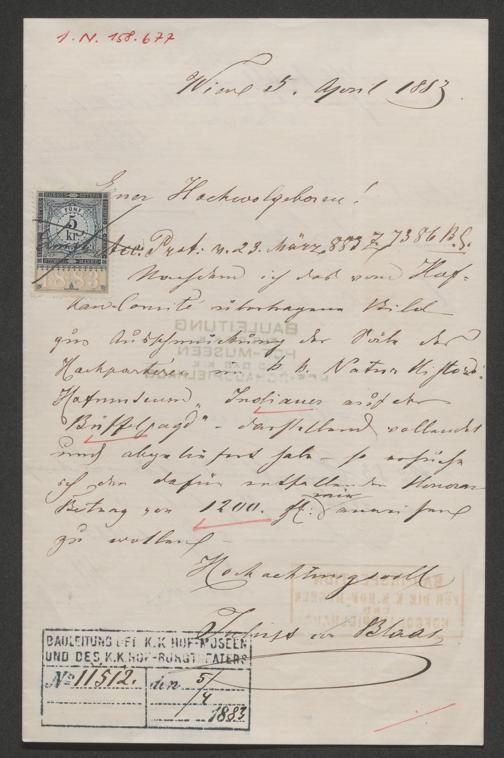 I. N. 158.677
Wien 5. April 1883
Euer Hochwolgeboren!
FÜNF
5
KR.
1883
Prot. v. 23. März 883 Z. 7386 B.L.
Nachdem ich das vom Hof-
bau-Comité übertragene Bild
zur Ausschmückung der Säle des
Hochparterre im k. k. Natur Histori.
Hofmuseum „Indianer auf der
Büffeljagd" – darstellend vollendet
und abgeliefert habe – so ersuche
ich den dafür entfallenden Honorar
Betrag von 1200. fl. mir anweisen
zu wollen –
Hochachtungsvoll
Julius von Blaas
BAULEITUNG DER K.K. HOF-MUSEEN
UND DES K.K. HOF-BURGTHEATERS
No 11512. den 5/4
1883
BAULEITUNG
HOF-MUSEEN
BAULEITUNG
FÜR DIE K.K. HOF-MUSEEN
UND